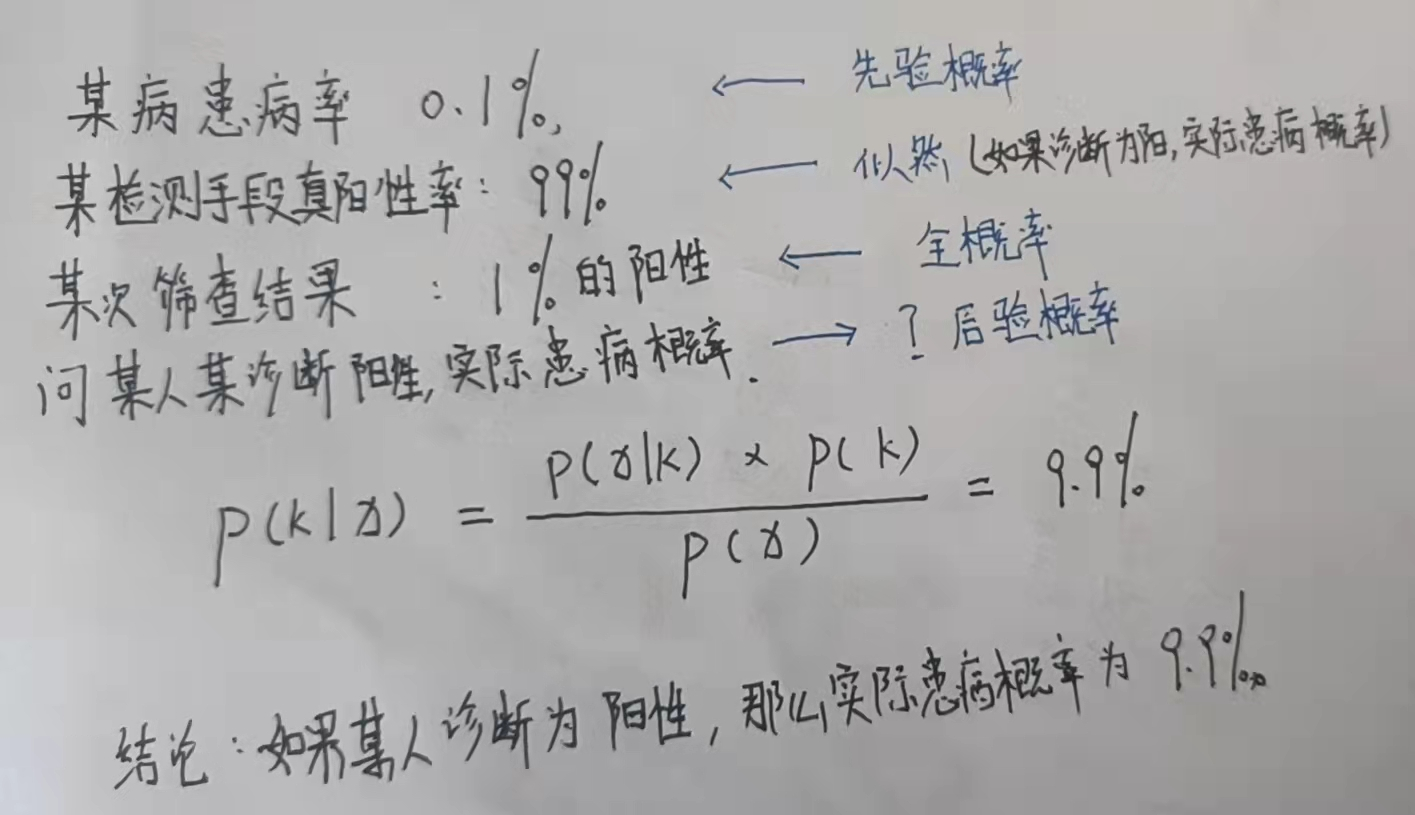 某病患病率 0.1%, ← 先验概率
某检测手段真阳性率: 99% ← 似然 (如果诊断为阳,实际患病概率)
某次筛查结果 : 1%的阳性 ← 全概率
问某人某诊断阳性,实际患病概率. → ? 后验概率
P(k|x) = P(x|k) × P(k) / P(x) = 9.9%
结论:如果某人诊断为阳性,那么实际患病概率为9.9%